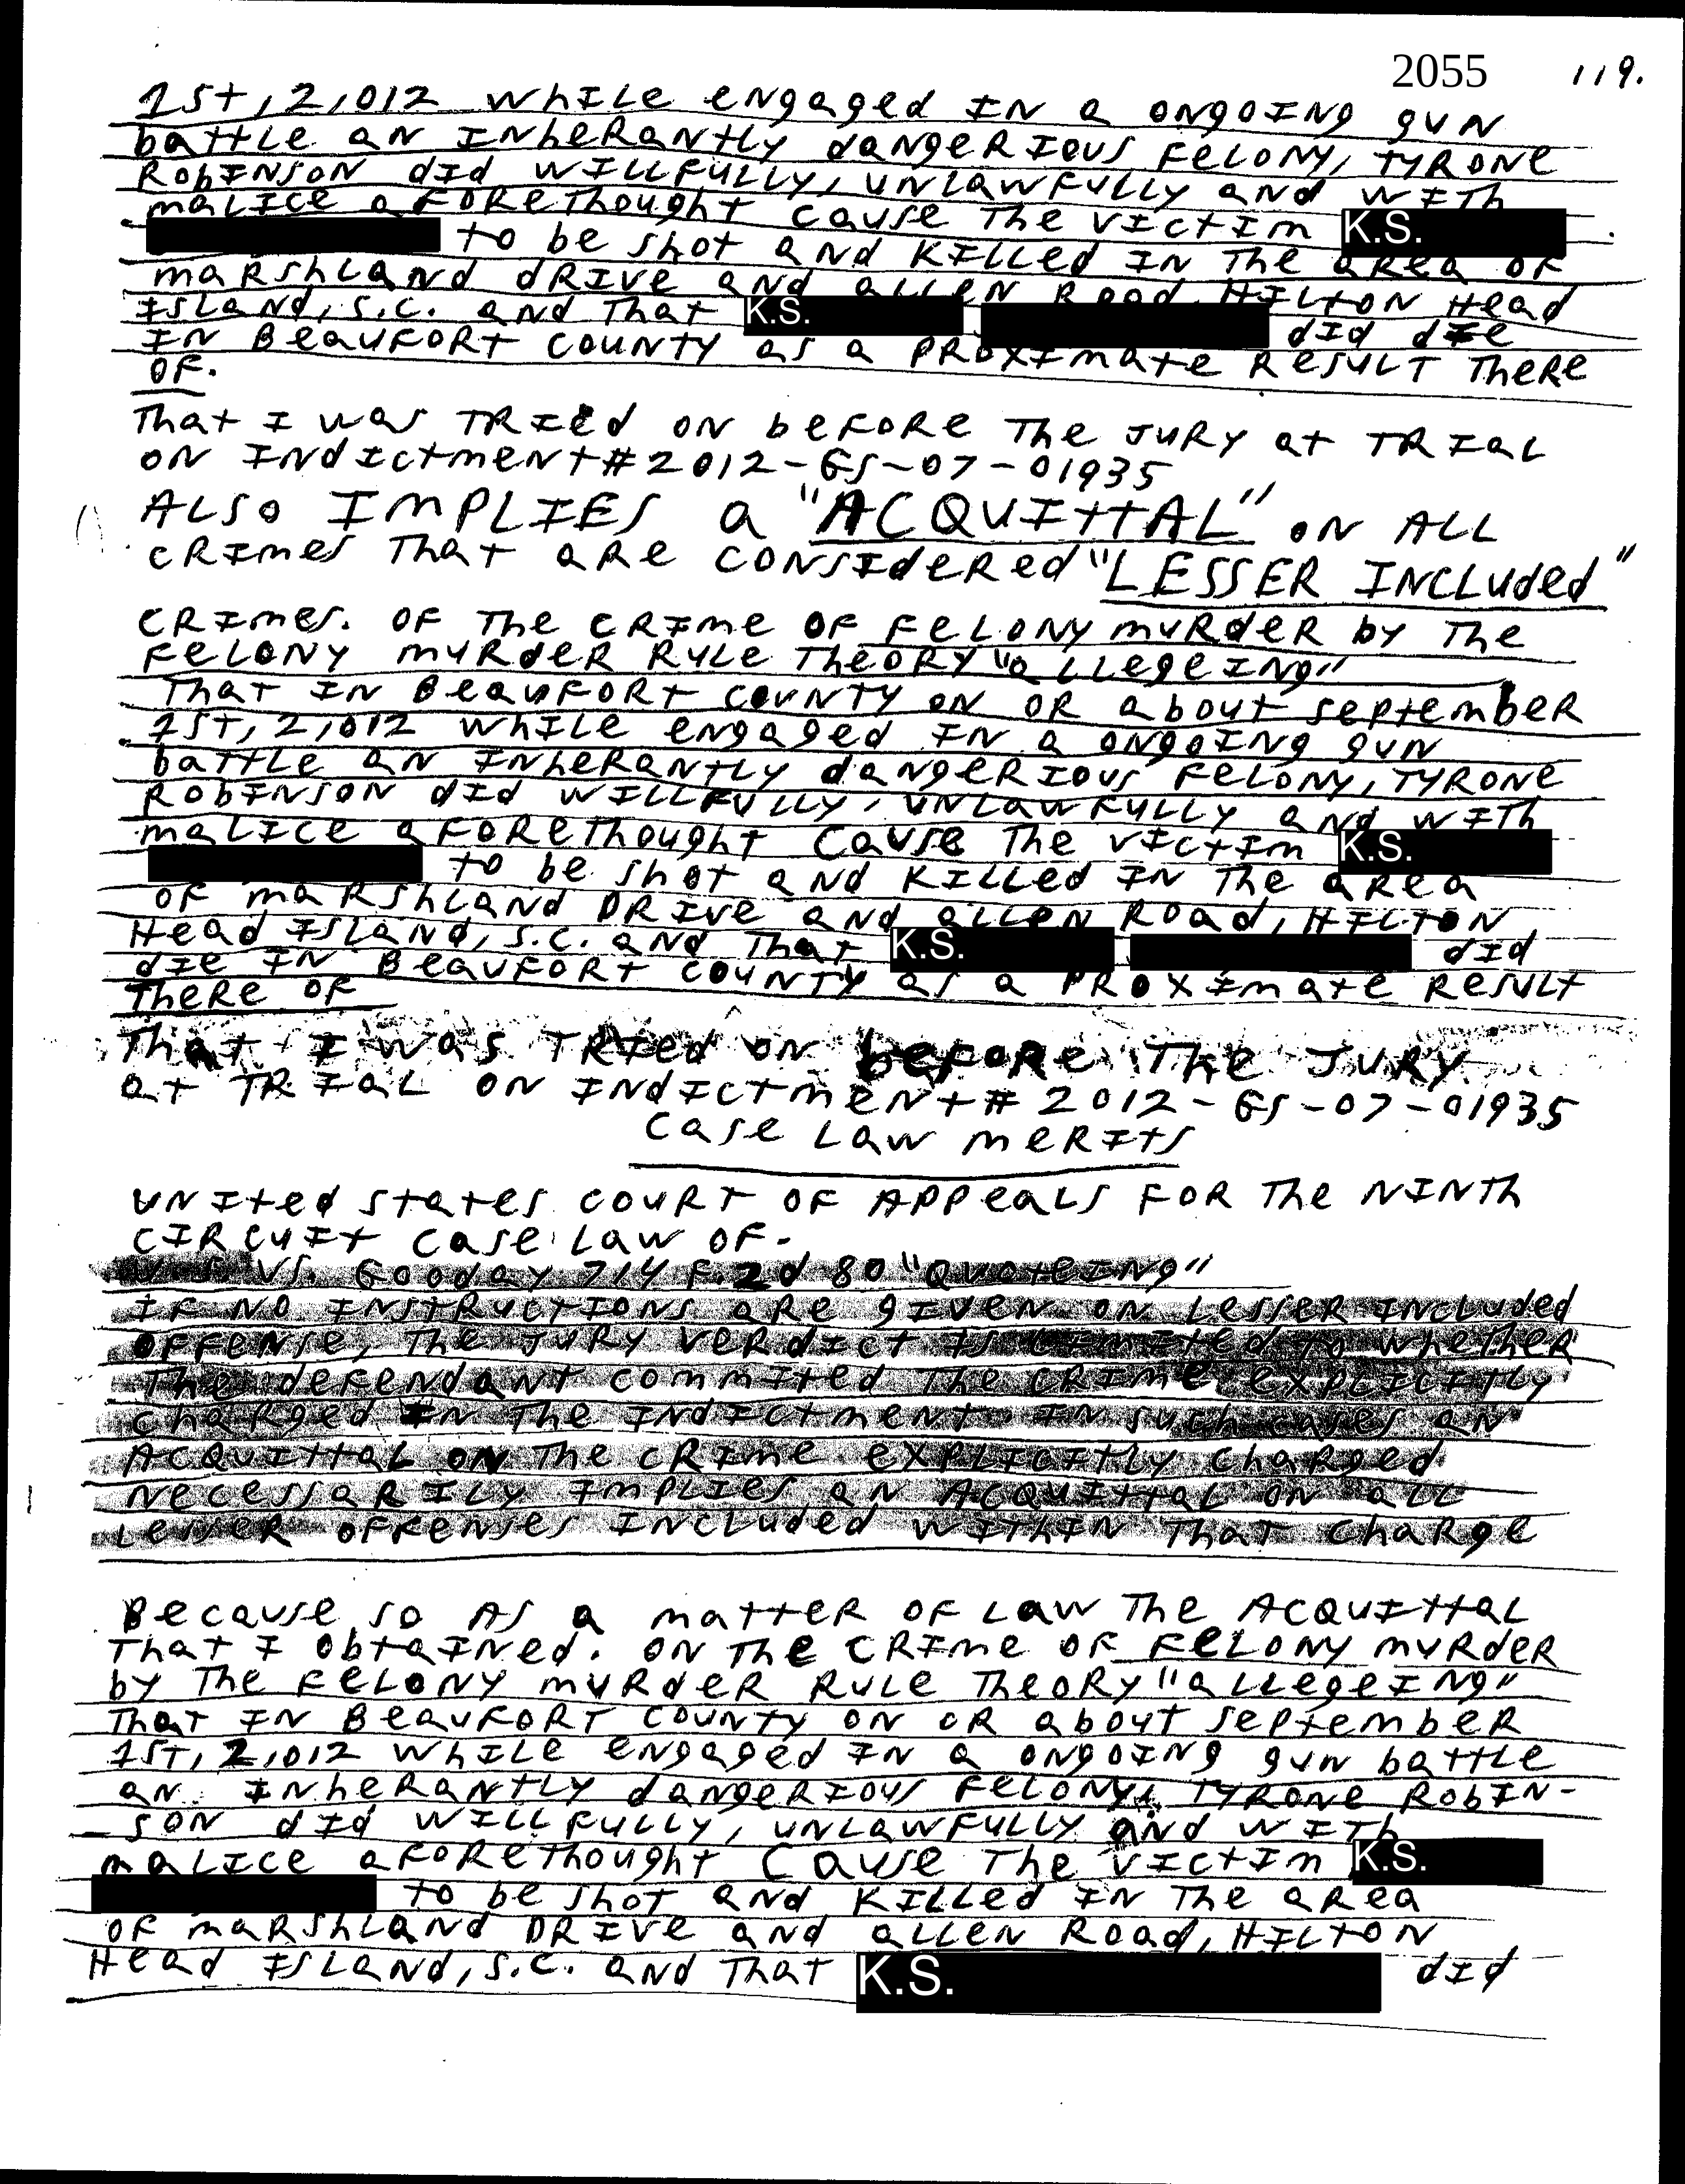 2055 119.
1ST, 2,012 WHILE ENGAGED IN A ONGOING GUN
BATTLE AN INHERANTLY DANGERIOUS FELONY, TYRONE
ROBINSON DID WILLFULLY, UNLAWFULLY AND WITH
MALICE AFORETHOUGHT CAUSE THE VICTIM K.S.
TO BE SHOT AND KILLED IN THE AREA OF
MARSHLAND DRIVE AND ALLEN ROAD, HILTON HEAD
ISLAND, S.C. AND THAT K.S. DID DIE
IN BEAUFORT COUNTY AS A PROXIMATE RESULT THERE
OF.
THAT I WAS TRIED ON BEFORE THE JURY AT TRIAL
ON INDICTMENT # 2012-GS-07-01935
ALSO IMPLIES A "ACQUITTAL" ON ALL
CRIMES THAT ARE CONSIDERED "LESSER INCLUDED"
CRIMES. OF THE CRIME OF FELONY MURDER BY THE
FELONY MURDER RULE THEORY "ALLEGEING"
THAT IN BEAUFORT COUNTY ON OR ABOUT SEPTEMBER
1ST, 2,012 WHILE ENGAGED IN A ONGOING GUN
BATTLE AN INHERANTLY DANGERIOUS FELONY, TYRONE
ROBINSON DID WILLFULLY, UNLAWFULLY AND WITH
MALICE AFORETHOUGHT CAUSE THE VICTIM K.S.
TO BE SHOT AND KILLED IN THE AREA
OF MARSHLAND DRIVE AND ALLEN ROAD, HILTON
HEAD ISLAND, S.C. AND THAT K.S. DID
DIE IN BEAUFORT COUNTY AS A PROXIMATE RESULT
THERE OF
THAT I WAS TRIED ON BEFORE THE JURY
AT TRIAL ON INDICTMENT # 2012-GS-07-01935
CASE LAW MERITS
UNITED STATES COURT OF APPEALS FOR THE NINTH
CIRCUIT CASE LAW OF.
U.S VS. GOODAY 714 F.2d 80 "QUOTEING"
IF NO INSTRUCTIONS ARE GIVEN ON LESSER INCLUDED
OFFENSE, THE JURY VERDICT IS LIMITED TO WHETHER
THE DEFENDANT COMMITED THE CRIME EXPLICITLY
CHARGED IN THE INDICTMENT. IN SUCH CASES AN
ACQUITTAL ON THE CRIME EXPLICITLY CHARGED
NECESSARILY IMPLIES AN ACQUITTAL ON ALL
LESSER OFFENSES INCLUDED WITHIN THAT CHARGE
BECAUSE SO AS A MATTER OF LAW THE ACQUITTAL
THAT I OBTAINED. ON THE CRIME OF FELONY MURDER
BY THE FELONY MURDER RULE THEORY "ALLEGEING"
THAT IN BEAUFORT COUNTY ON OR ABOUT SEPTEMBER
1ST, 2,012 WHILE ENGAGED IN A ONGOING GUN BATTLE
AN INHERANTLY DANGERIOUS FELONY, TYRONE ROBIN-
-SON DID WILLFULLY, UNLAWFULLY AND WITH
MALICE AFORETHOUGHT CAUSE THE VICTIM K.S.
TO BE SHOT AND KILLED IN THE AREA
OF MARSHLAND DRIVE AND ALLEN ROAD, HILTON
HEAD ISLAND, S.C. AND THAT K.S. DID